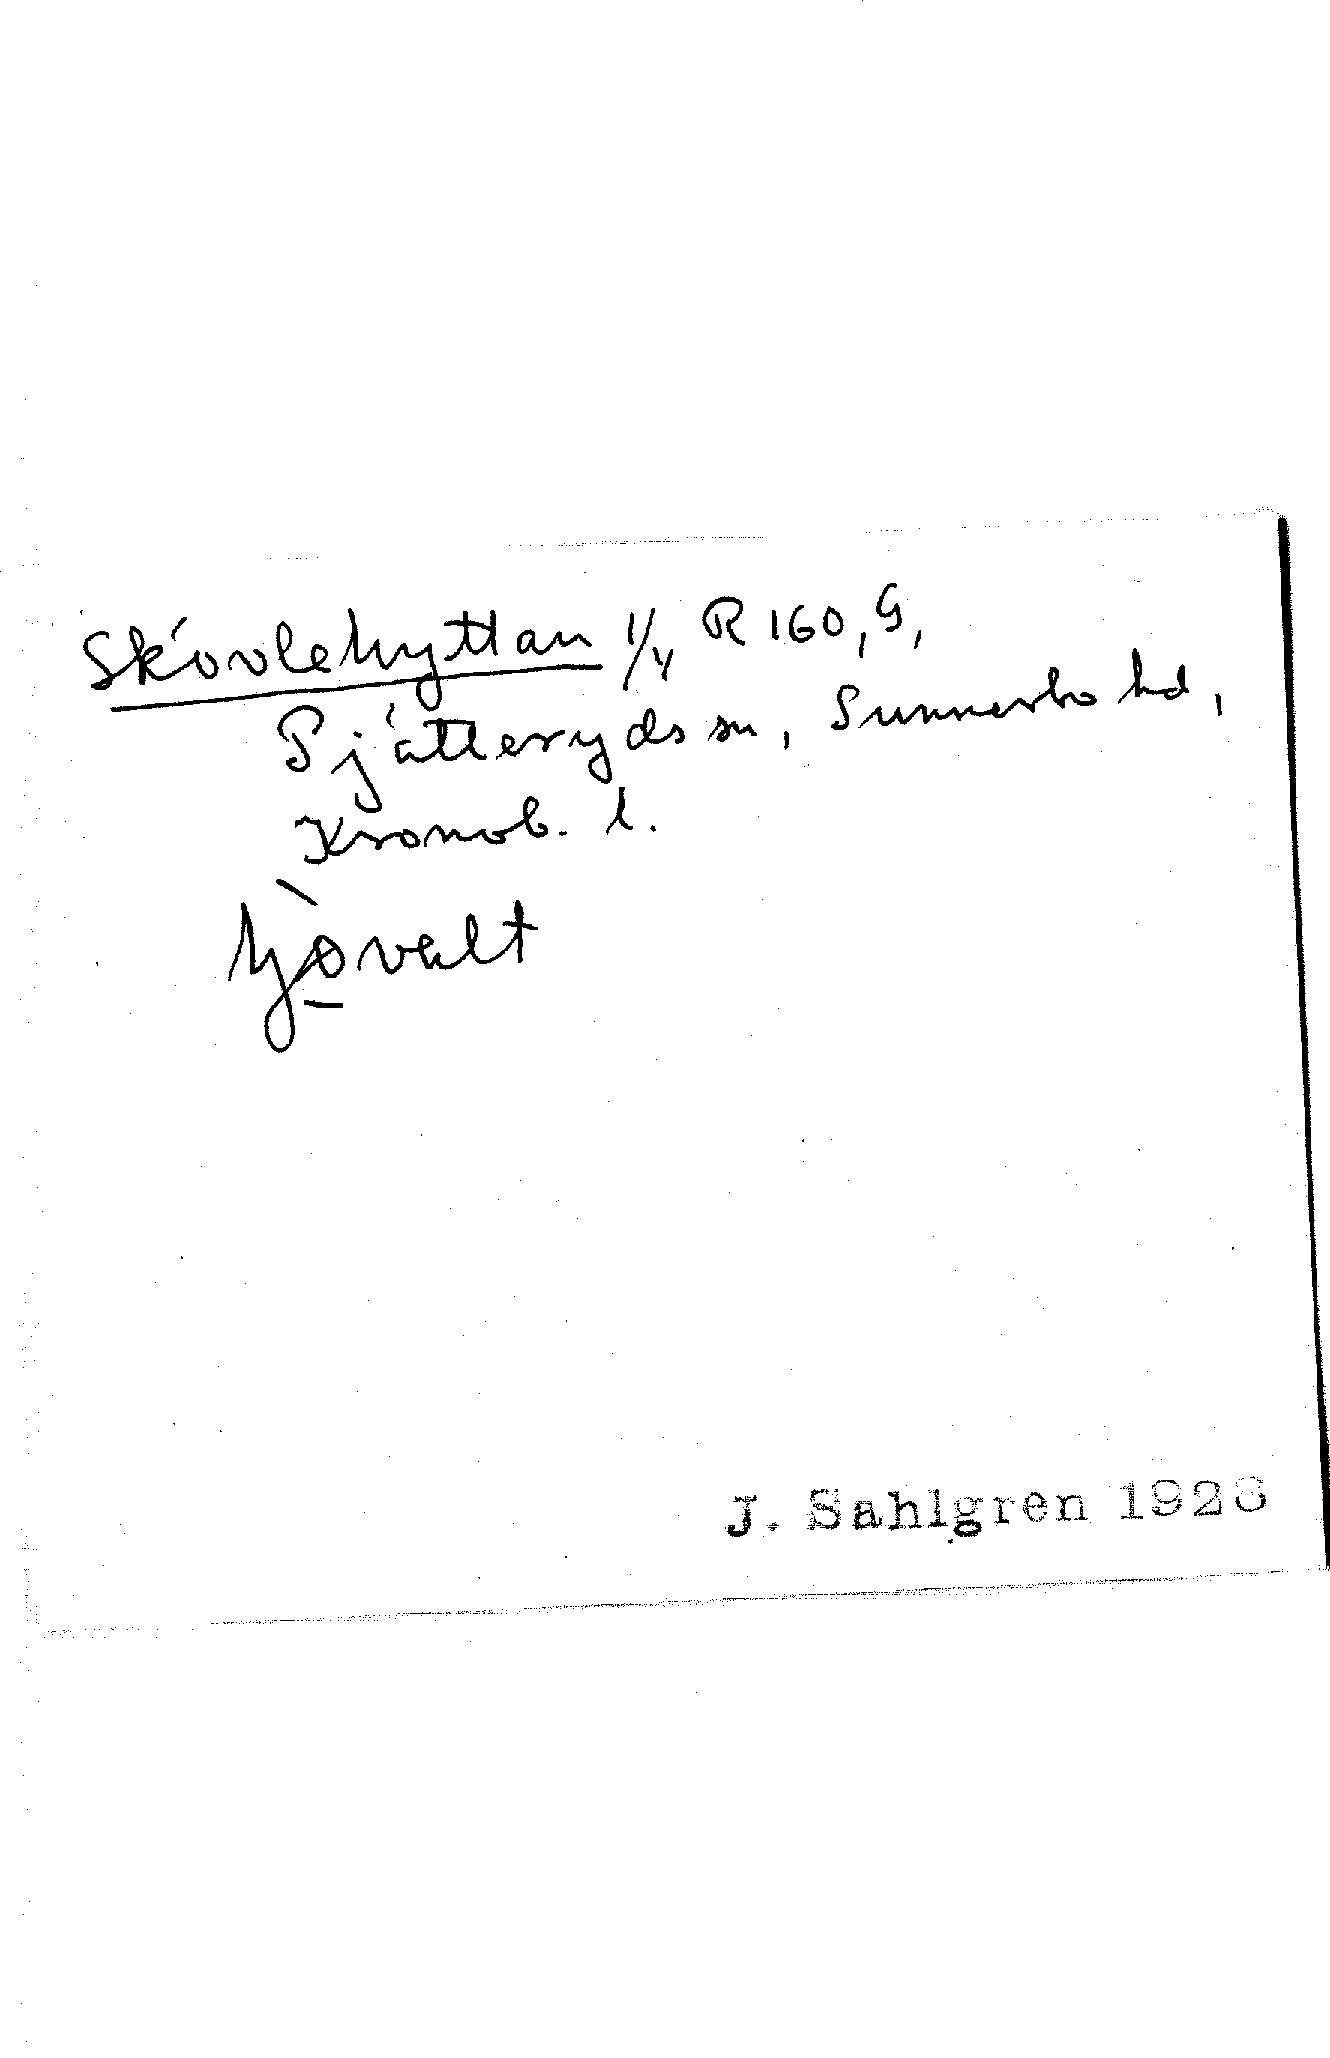 Skövlehyttan 1/4 R 160, G,
Pjätteryds sn, Sunnerbo hd,
Kronob. l.
J. Sahlgren 1926